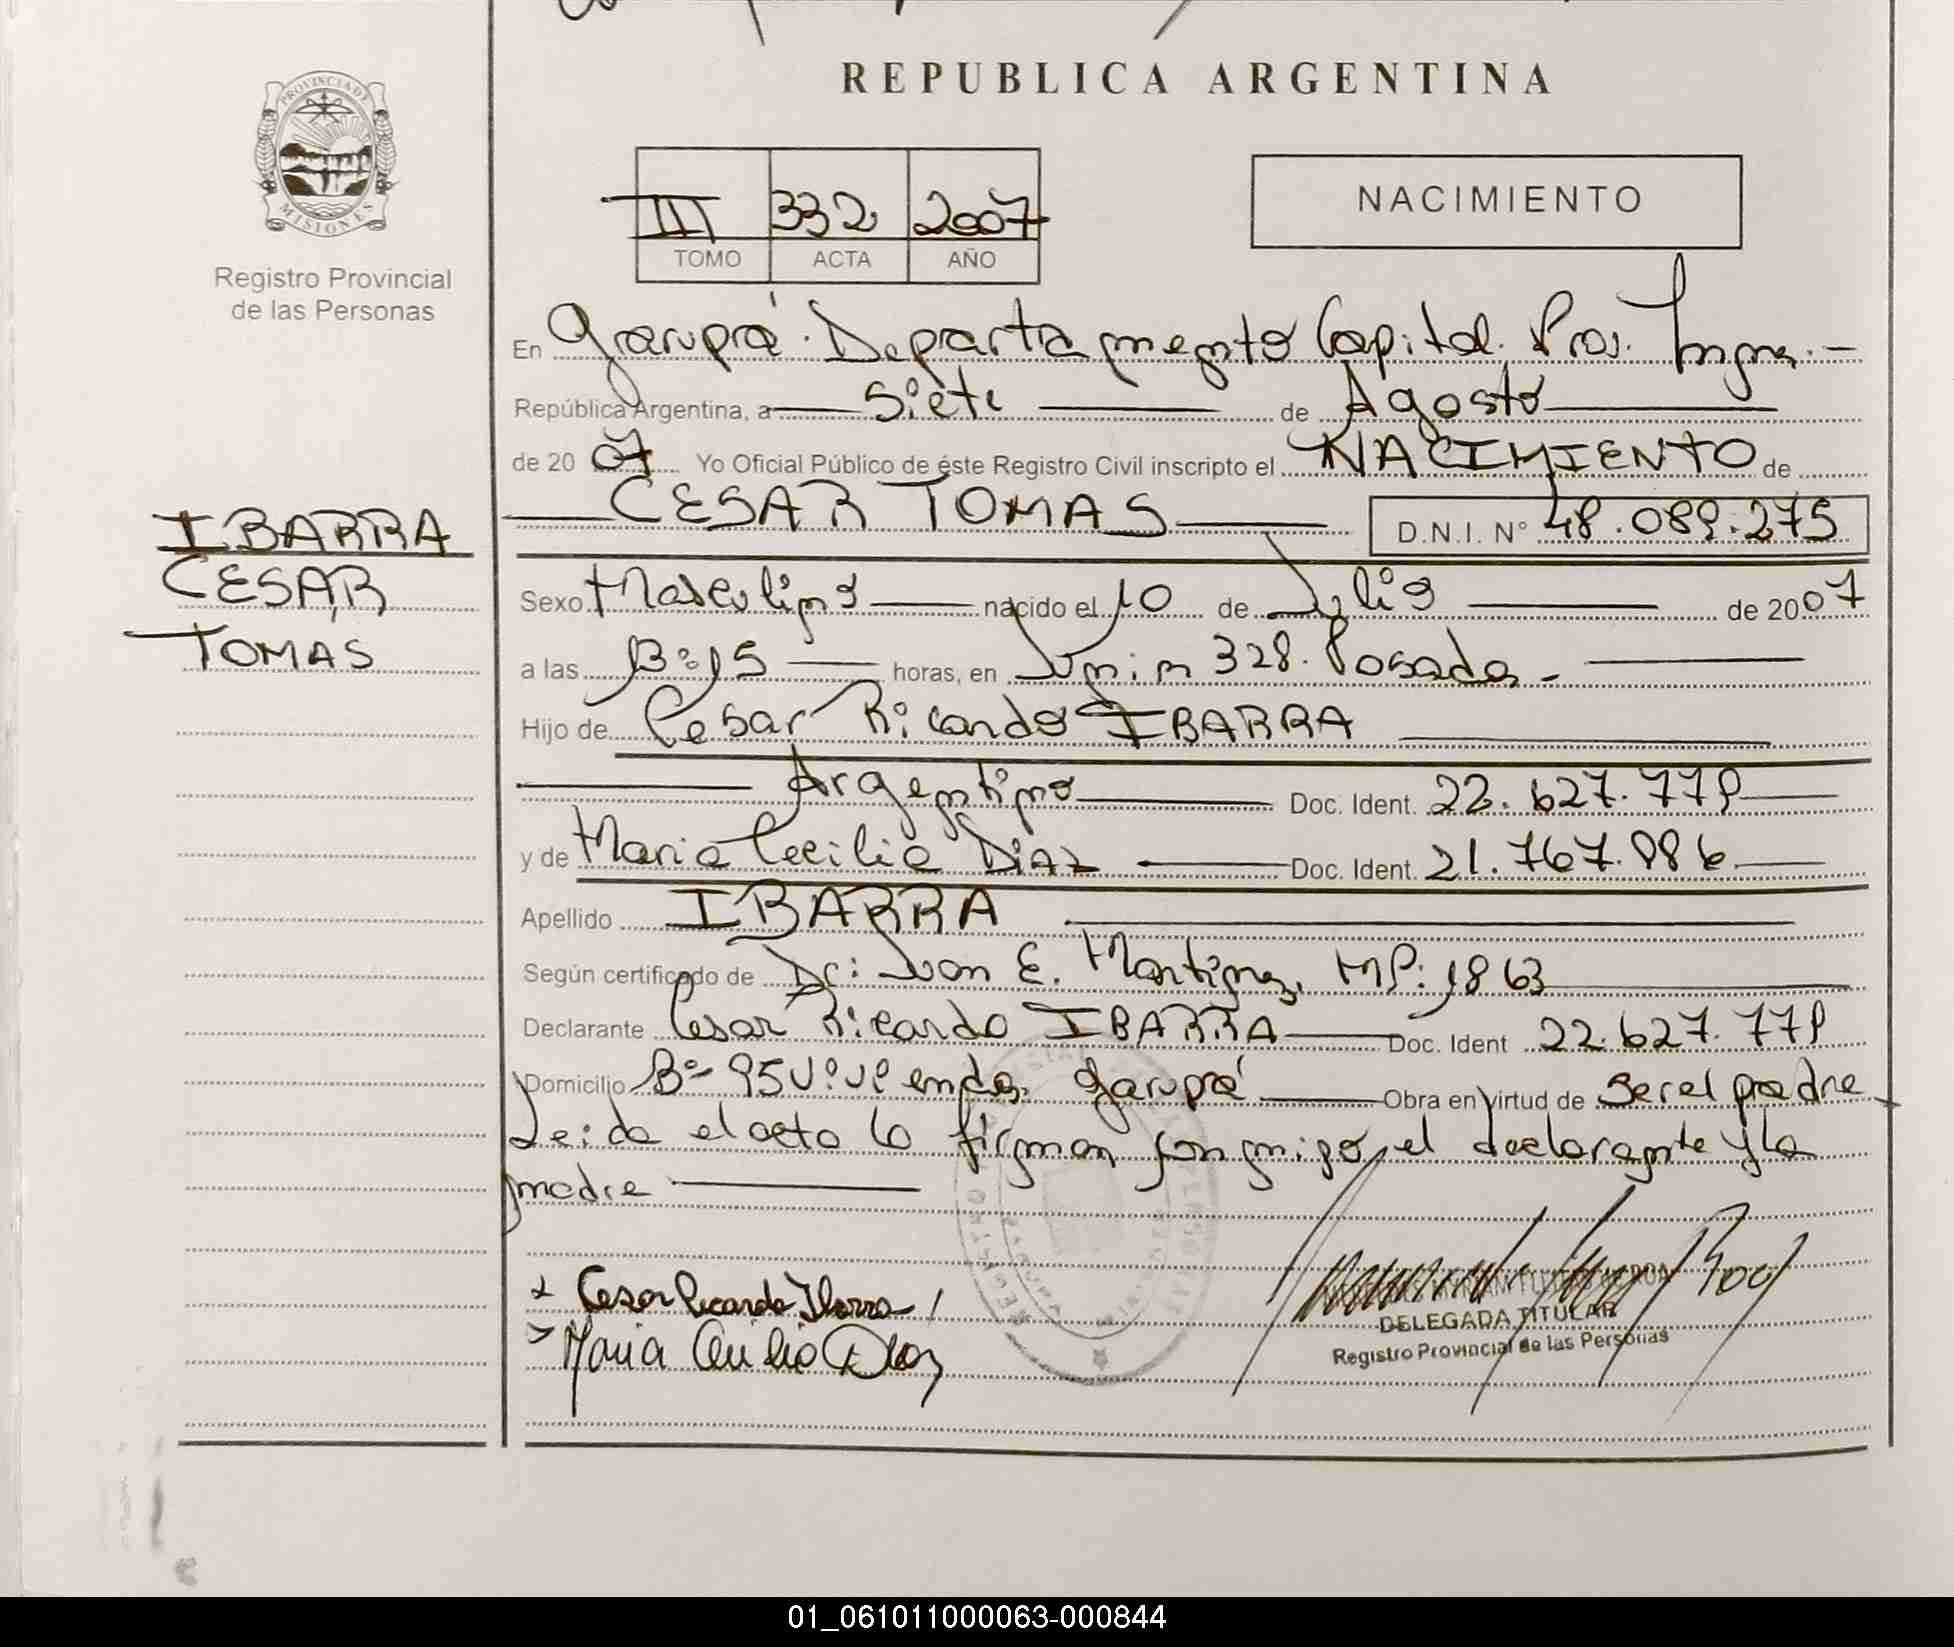 REPUBLICA ARGENTINA
PROVINCIA DE
MISIONES
Registro Provincial
de las Personas
III 332 2007
TOMO ACTA AÑO
NACIMIENTO
En Garupá. Departamento Capital. Pos. Mnes.-
República Argentina, a siete de Agosto
de 2007 Yo Oficial Público de éste Registro Civil inscripto el NACIMIENTO de
CESAR TOMAS D.N.I. Nº 48.089.275
IBARRA
CESAR
TOMAS
Sexo Masculino nacido el 10 de Julio de 2007
a las 13:15 horas, en Junin 328. Posadas.-
Hijo de Cesar Ricardo IBARRA
Argentino Doc. Ident. 22.627.779
y de Maria Cecilia DIAZ Doc. Ident. 21.767.986
Apellido IBARRA
Según certificado de Dr: Juan E. Martinez, MP: 1863
Declarante Cesar Ricardo IBARRA Doc. Ident 22.627.779
Domicilio Bº 95 Viviendas. Garupá Obra en virtud de ser el padre
Leida el acta la firman conmigo, el declarante y la
madre
Cesar Ricardo Ibarra
Maria Cecilia Diaz
DELEGADA TITULAR
Registro Provincial de las Personas
01_061011000063-000844